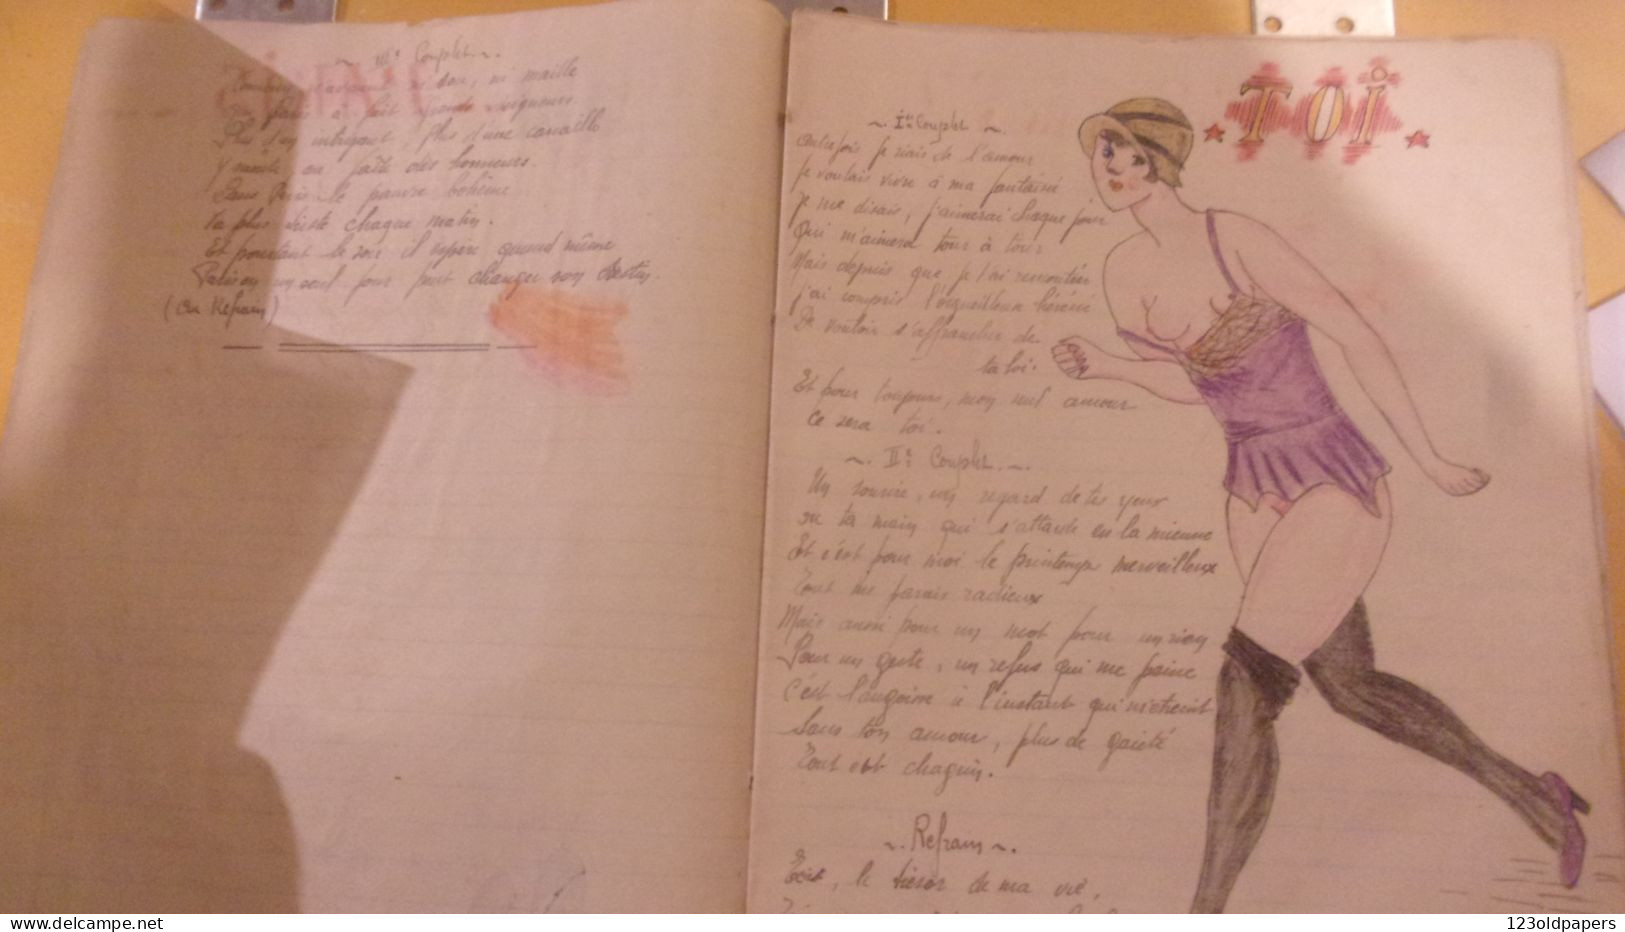 ~ IIIe Couplet ~
ni maille
Paris a fait
Plus d'un intrigant, plus d'une canaille
y monte au faîte des honneurs.
Dans Paris le pauvre bohème
Va plus triste chaque matin.
Et pourtant le soir il espère quand même
un seul jour peut changer son destin.
(Au Refrain)
TOI
~ Ier Couplet ~
Autrefois je riais de l'amour
Je voulais vivre à ma fantaisie
Je me disais, j'aimerai chaque jour
Qui m'aimera tour à tour
Mais depuis que je t'ai rencontrée
j'ai compris l'orgueilleux
De vouloir s'affranchir de
ta loi.
Et pour toujours, mon seul amour
ce sera toi.
~ . IIe Couplet . ~
Un sourire, un regard de tes yeux
ou ta main qui s'attarde en la mienne
Et c'est pour moi le printemps merveilleux
Tout me parais radieux
Mais aussi pour un mot pour un rien
Pour un geste, un refus qui me peine
C'est l'angoisse à l'instant qui m'étreint
Sans ton amour, plus de gaieté
Tout est chagrin.
~ . Refrain ~ .
le trésor de ma vie,
123oldpapers